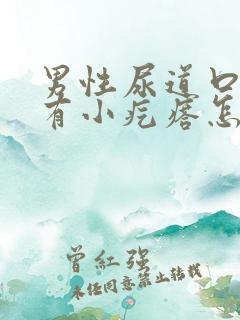 男性尿道口
有小疙瘩怎
曾红强
未经同意禁止转载